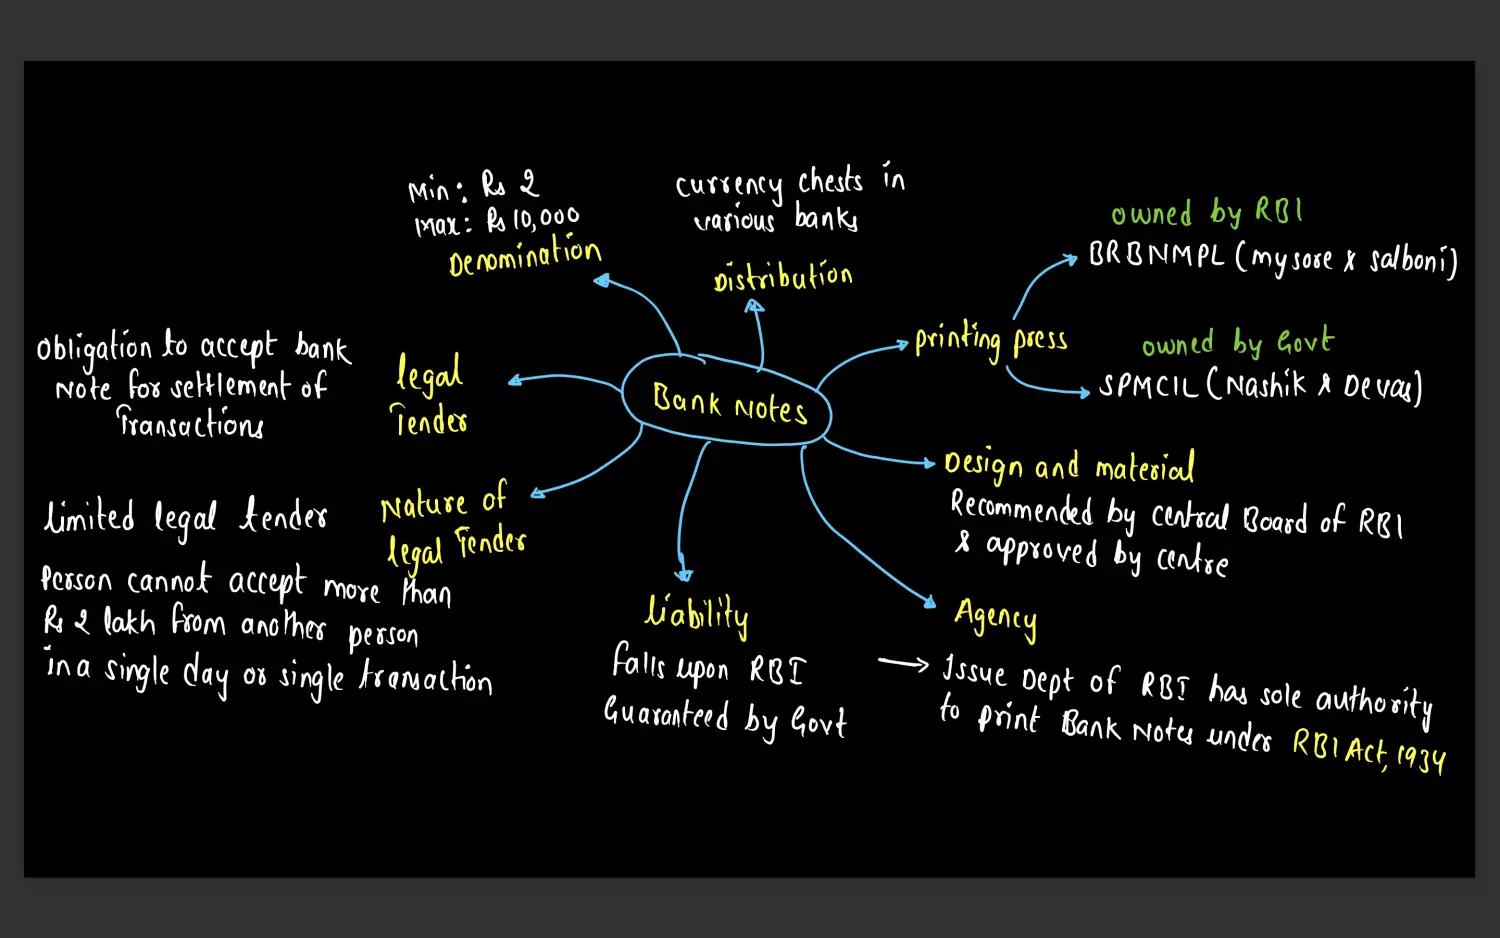 Min: Rs 2
Max: Rs 10,000
Denomination
currency chests in
various banks
Distribution
owned by RBI
BRBNMPL (mysore & salboni)
printing press
owned by Govt
SPMCIL (Nashik & Devas)
Obligation to accept bank
Note for settlement of
Transactions
legal
Tender
Bank Notes
Design and material
Recommended by central Board of RBI
& approved by centre
Nature of
legal Tender
limited legal tender
Person cannot accept more than
Rs 2 lakh from another person
in a single day or single transaction
liability
falls upon RBI
Guaranteed by Govt
Agency
→ Issue Dept of RBI has sole authority
to print Bank Notes under RBI Act, 1934